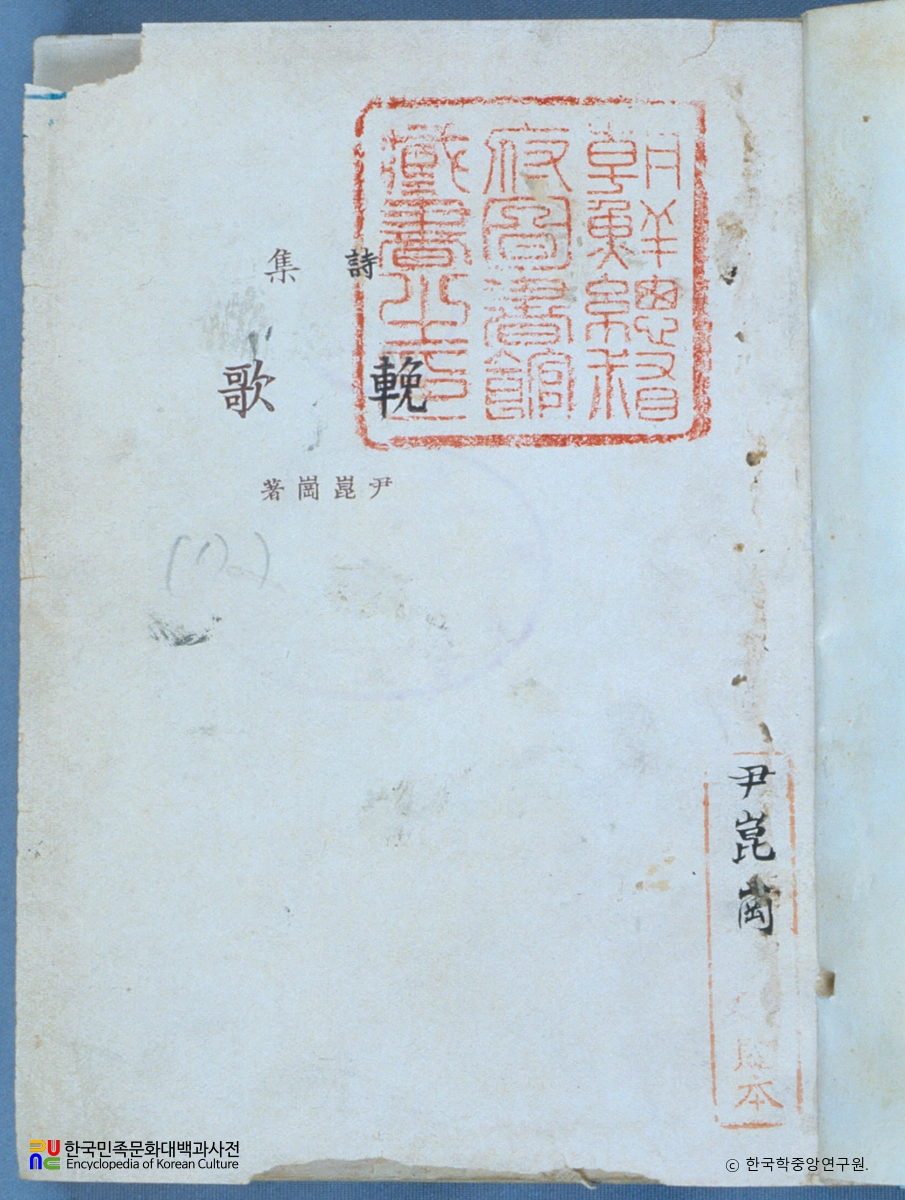 朝鮮總督
府圖書館
藏書之印
詩集
輓歌
尹崑崗著
尹崑崗
本
한국민족문화대백과사전
Encyclopedia of Korean Culture
© 한국학중앙연구원.